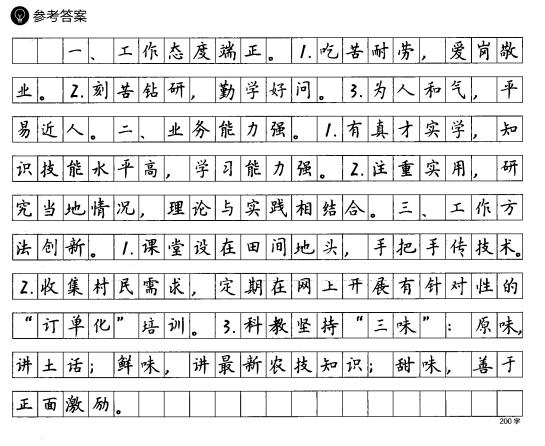 参考答案
一、工作态度端正。1.吃苦耐劳，爱岗敬
业。2.刻苦钻研，勤学好问。3.为人和气，平
易近人。二、业务能力强。1.有真才实学，知
识技能水平高，学习能力强。2.注重实用，研
究当地情况，理论与实践相结合。三、工作方
法创新。1.课堂设在田间地头，手把手传技术。
2.收集村民需求，定期在网上开展有针对性的
“订单化”培训。3.科教坚持“三味”：原味，
讲土话；鲜味，讲最新农技知识；甜味，善于
正面激励。
200字